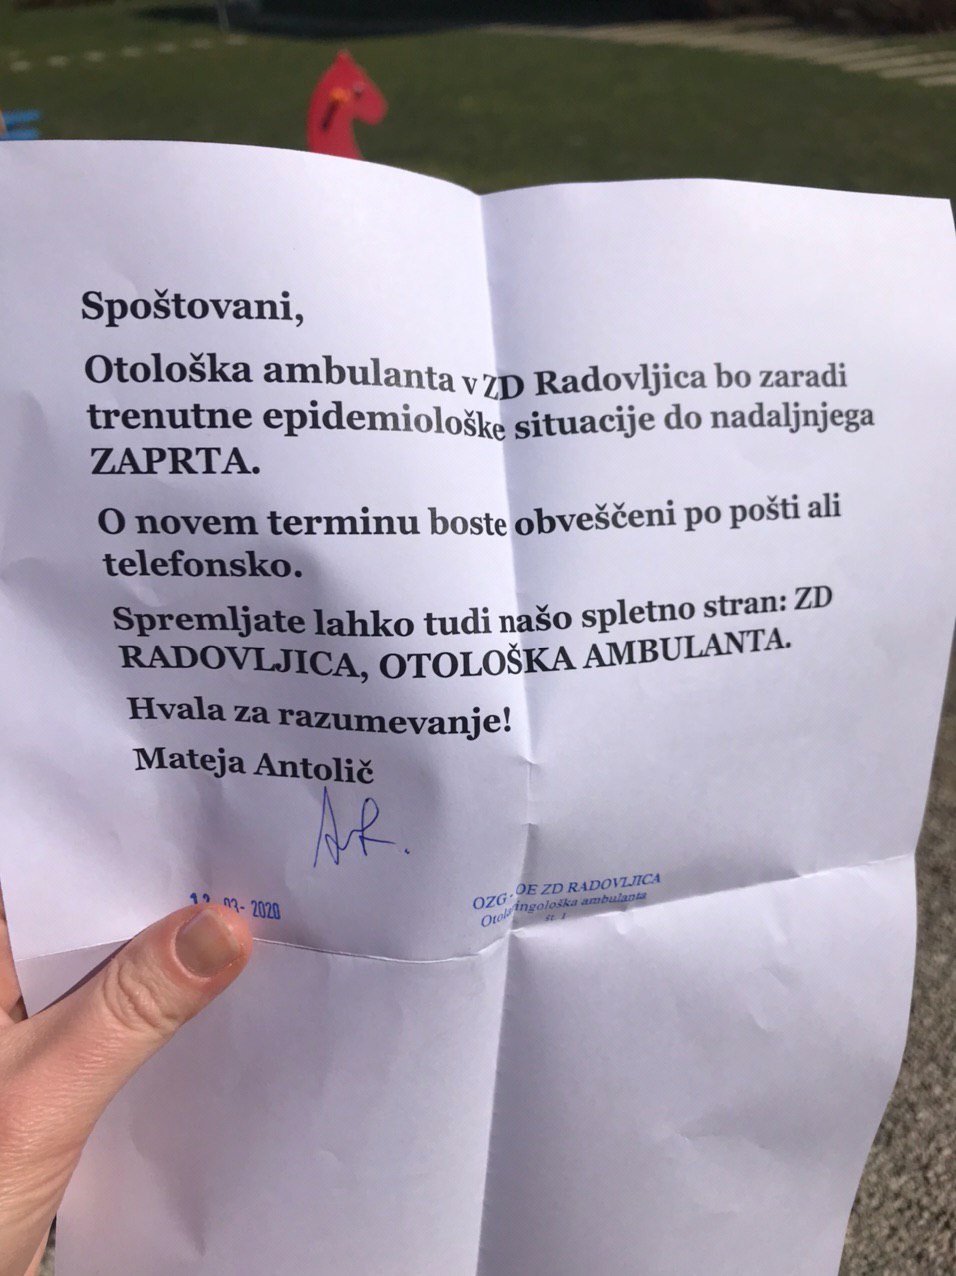 Spoštovani,
Otološka ambulanta v ZD Radovljica bo zaradi
trenutne epidemiološke situacije do nadaljnjega
ZAPRTA.
O novem terminu boste obveščeni po pošti ali
telefonsko.
Spremljate lahko tudi našo spletno stran: ZD
RADOVLJICA, OTOLOŠKA AMBULANTA.
Hvala za razumevanje!
Mateja Antolič
03- 2020
OZG - OE ZD RADOVLJICA
ambulanta